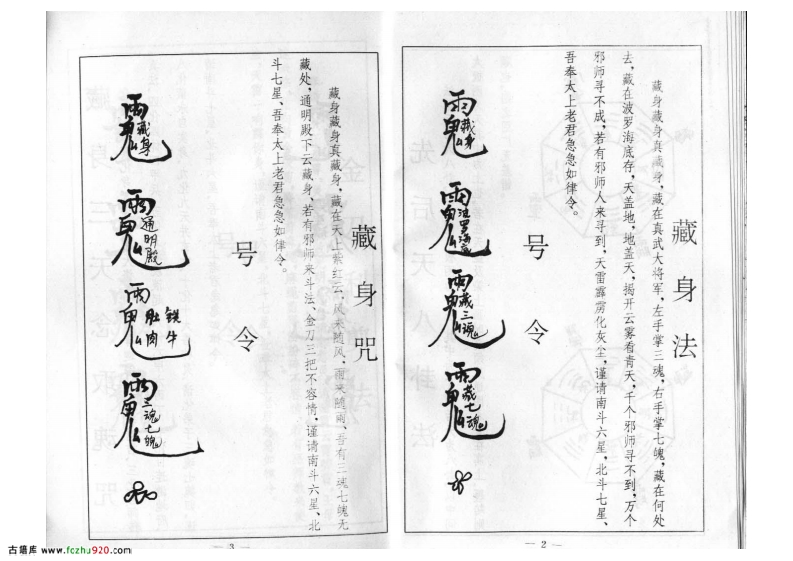 藏身法
藏身藏身真藏身，藏在真武大将军，左手掌三魂，右手掌七魄，藏在何处
去，藏在波罗海底存，天盖地，地盖天，揭开云雾看青天，千个邪师寻不到，万个
邪师寻不成，若有邪师人来寻到，天雷霹雳化灰尘，谨请南斗六星、北斗七星、
吾奉太上老君急急如律令。
号令
藏身
藏三魂
藏七魂
— 2 —
藏身咒
藏身藏身真藏身，藏在天上紫红云，风来随风，雨来随雨、吾有三魂七魄无
藏处，通明殿下云藏身、若有邪师来斗法、金刀三把不容情，谨请南斗六星、北
斗七星、吾奉太上老君急急如律令。
号令
藏身
通明殿
肚肉
铁牛
三魂七魄
— 3 —
古籍库 www.fczhu920.com